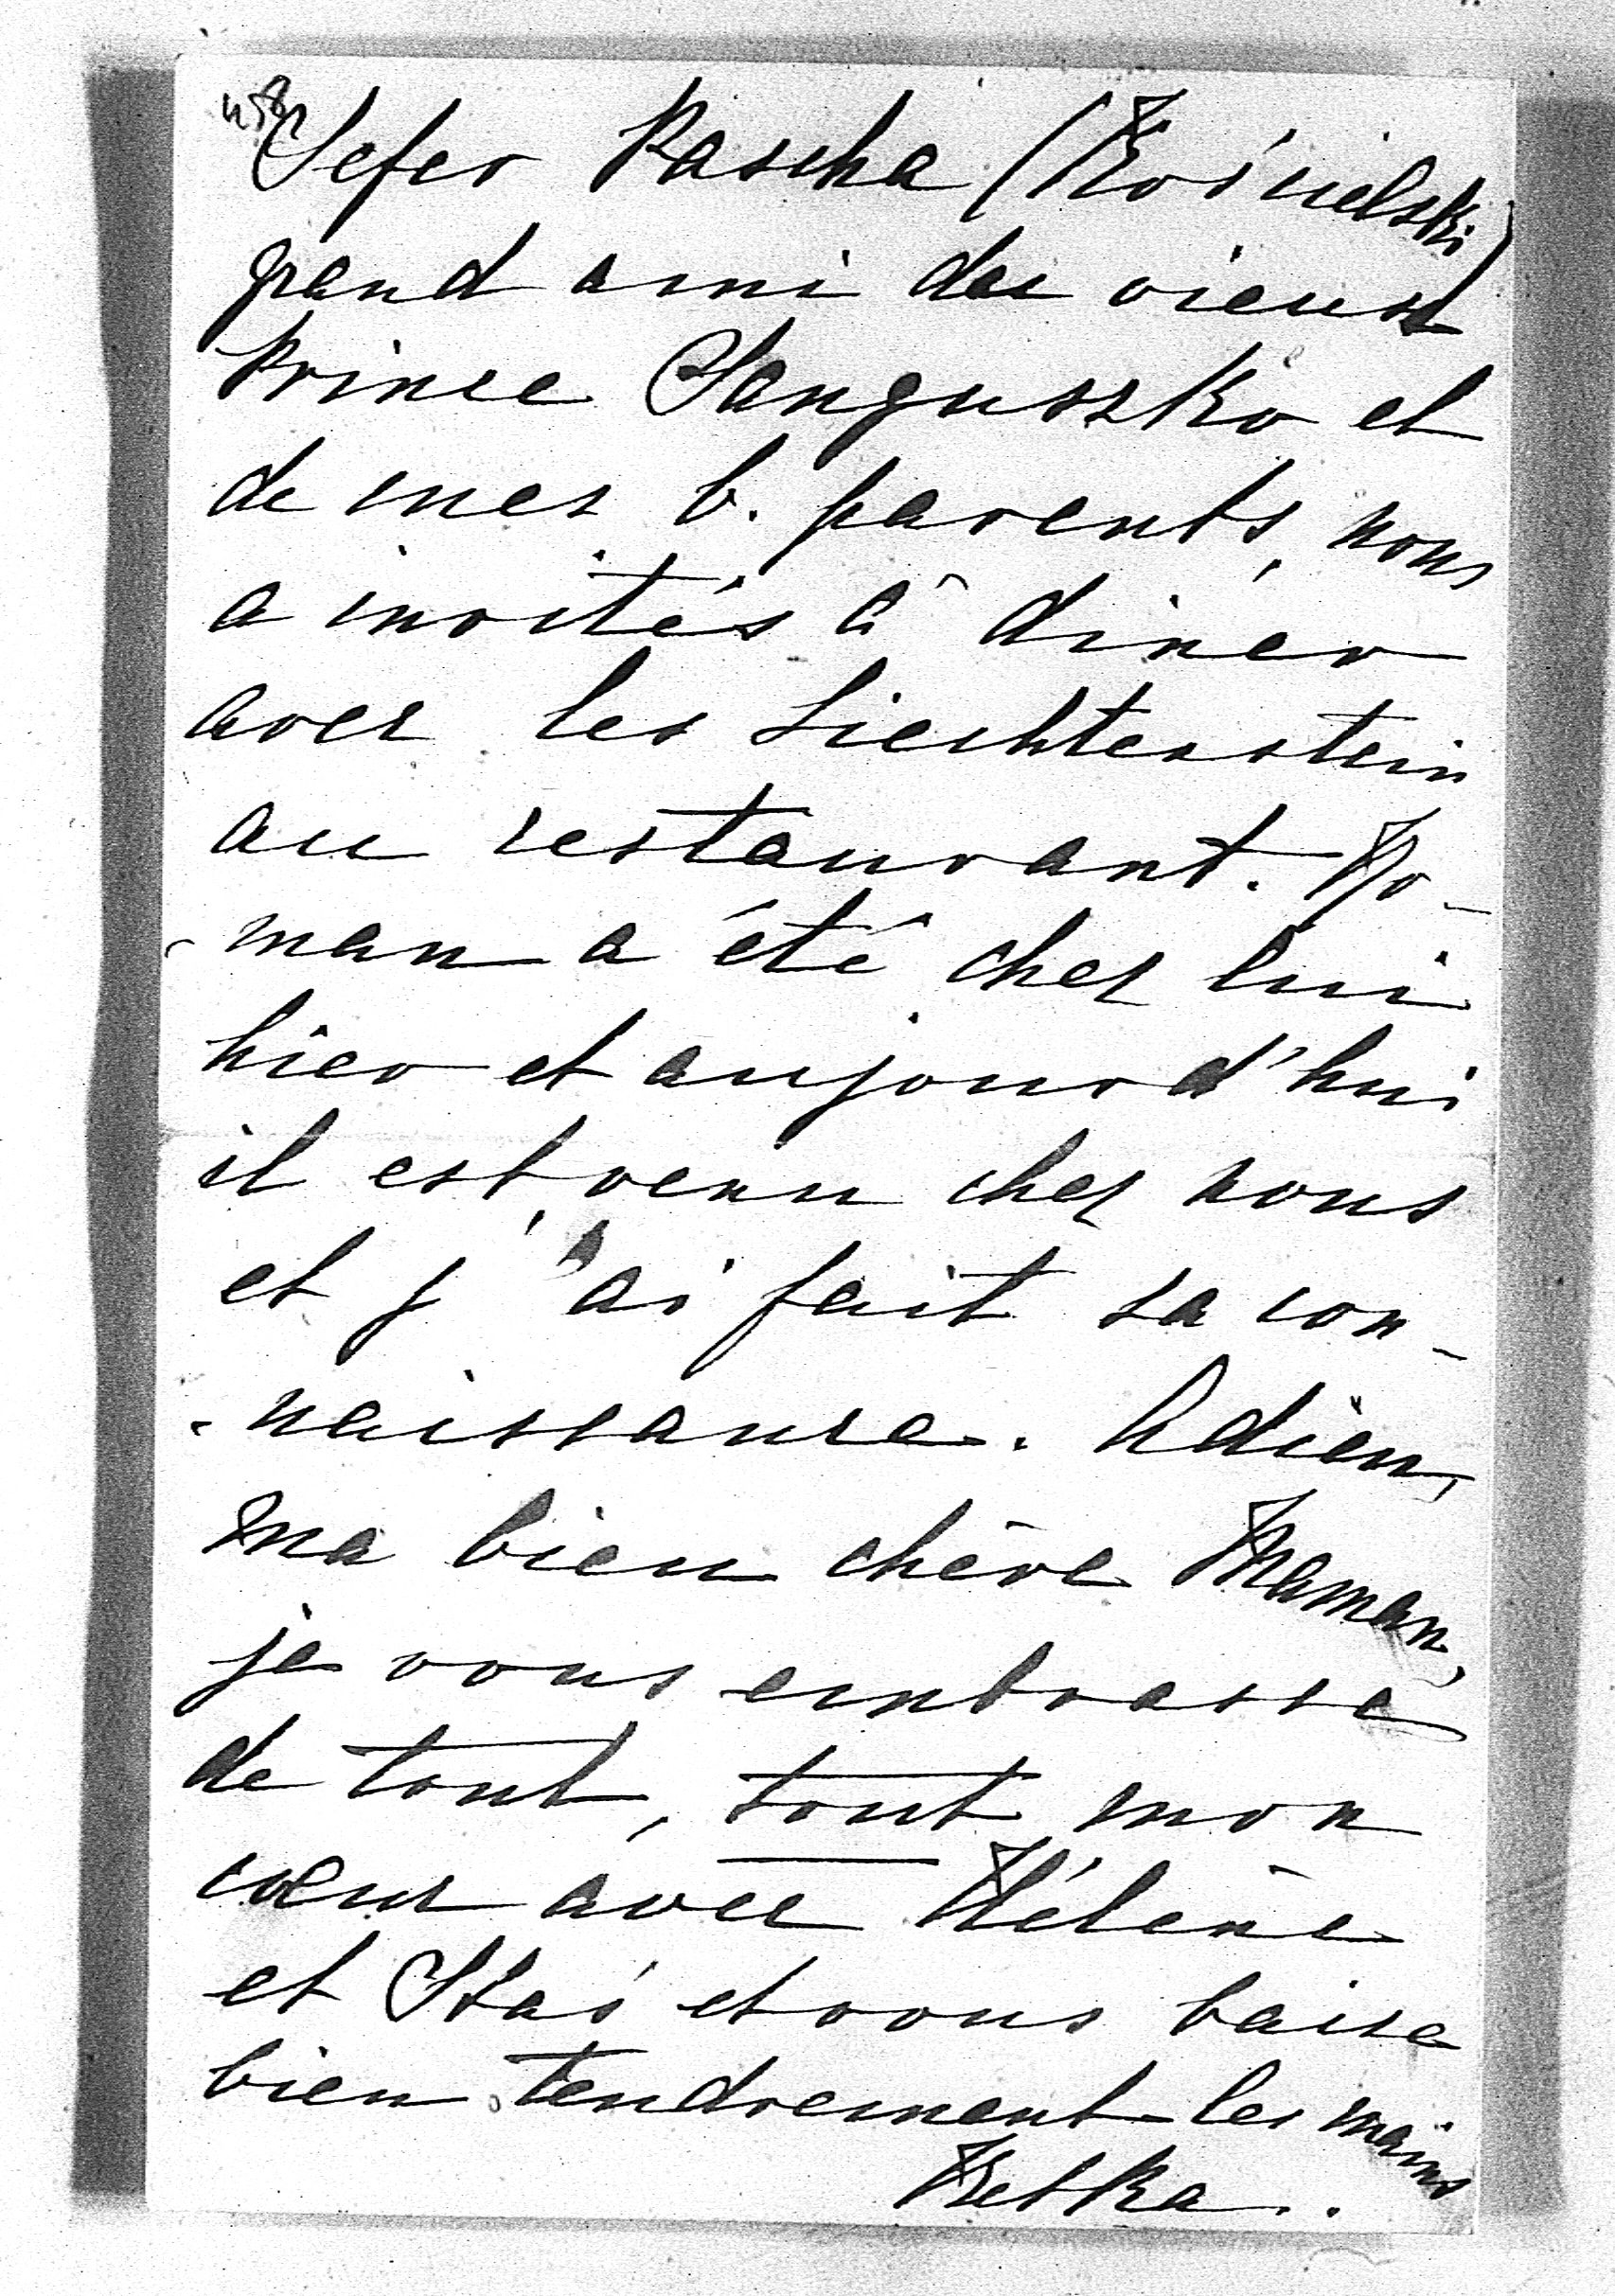 Sefer Pascha (Kościelski)
grand ami du vieux
Prince Sanguszko et
de mes b. parents, nous
a invités à diner
avec les Liechtenstein
au restaurant. Ro-
-man a été chez lui
hier et aujourd'hui
il est venu chez nous
et j'ai fait sa con-
-naissance. Adieu,
ma bien chère Maman,
je vous embrasse
de tout, tout mon
cœur avec Hélène
et Staś et vous baise
bien tendrement les mains
Betka.